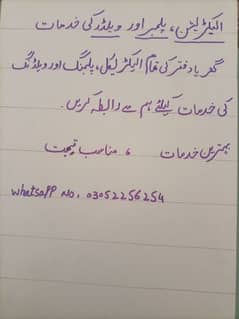 الیکٹریشن، پلمبر اور ویلڈر کی خدمات
گھر یا دفتر کی تمام الیکٹریکل، پلمبنگ اور ویلڈنگ
کی خدمات کیلئے ہم سے رابطہ کریں۔
بہترین خدمات ، مناسب قیمت
Whatsapp No. 03052256254